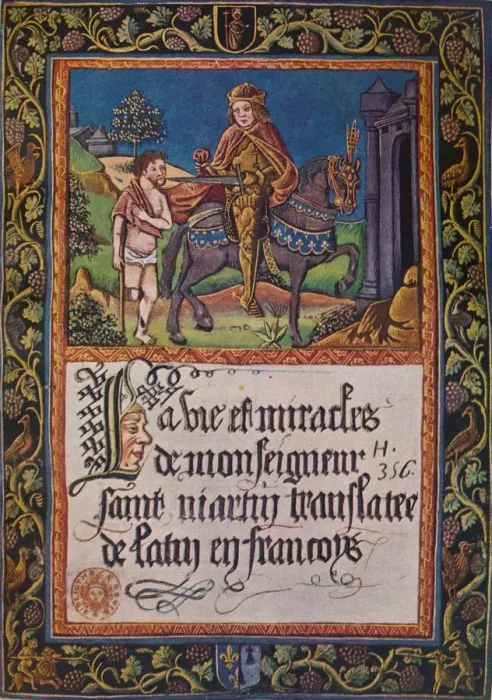 La vie et miracles
de monseigneur
H.
356.
saint martin translatee
de latin en francoys